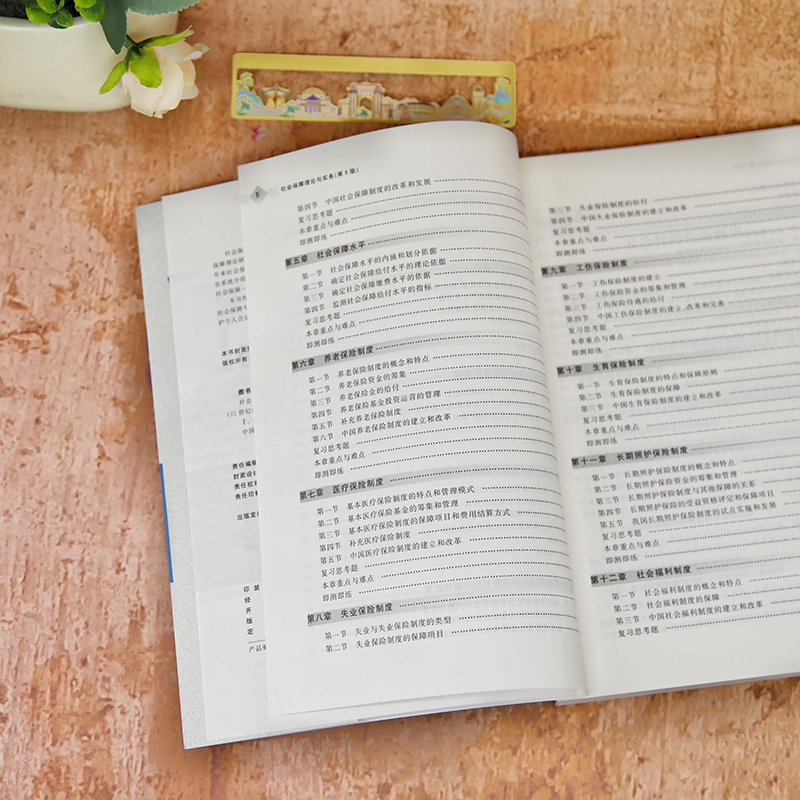 社会保障理论与实务(第5版)
第四节 中国社会保障制度的改革和发展
复习思考题
本章重点与难点
即测即练
第五章 社会保障水平
第一节 社会保障水平的内涵和划分依据
第二节 确定社会保障给付水平的理论依据
第三节 确定社会保障缴费水平的依据
第四节 监测社会保障给付水平的指标
复习思考题
本章重点与难点
即测即练
第六章 养老保险制度
第一节 养老保险制度的概念和特点
第二节 养老保险资金的筹集
第三节 养老保险金的给付
第四节 养老保险基金投资运营的管理
第五节 补充养老保险制度
第六节 中国养老保险制度的建立和改革
复习思考题
本章重点与难点
即测即练
第七章 医疗保险制度
第一节 基本医疗保险制度的特点和管理模式
第二节 基本医疗保险基金的筹集和管理
第三节 基本医疗保险制度的保障项目和费用结算方式
第四节 补充医疗保险制度
第五节 中国医疗保险制度的建立和改革
复习思考题
本章重点与难点
即测即练
第八章 失业保险制度
第一节 失业与失业保险制度的类型
第二节 失业保险制度的保障项目
第三节 失业保险制度的给付
第四节 中国失业保险制度的建立和改革
复习思考题
本章重点与难点
即测即练
第九章 工伤保险制度
第一节 工伤保险制度的建立
第二节 工伤保险资金的筹集和管理
第三节 工伤保险待遇的给付
第四节 中国工伤保险制度的建立、改革和完善
复习思考题
本章重点与难点
即测即练
第十章 生育保险制度
第一节 生育保险制度的特点和保障原则
第二节 生育保险制度的保障
第三节 中国生育保险制度的建立和改革
复习思考题
本章重点与难点
即测即练
第十一章 长期照护保险制度
第一节 长期照护保险制度的概念和特点
第二节 长期照护保险资金的筹集和管理
第三节 长期照护保险制度与其他保障的关系
第四节 长期照护保险的受益资格评定和保障项目
第五节 我国长期照护保险制度的试点实施和发展
复习思考题
本章重点与难点
即测即练
第十二章 社会福利制度
第一节 社会福利制度的概念和特点
第二节 社会福利制度的保障
第三节 中国社会福利制度的建立和改革
复习思考题